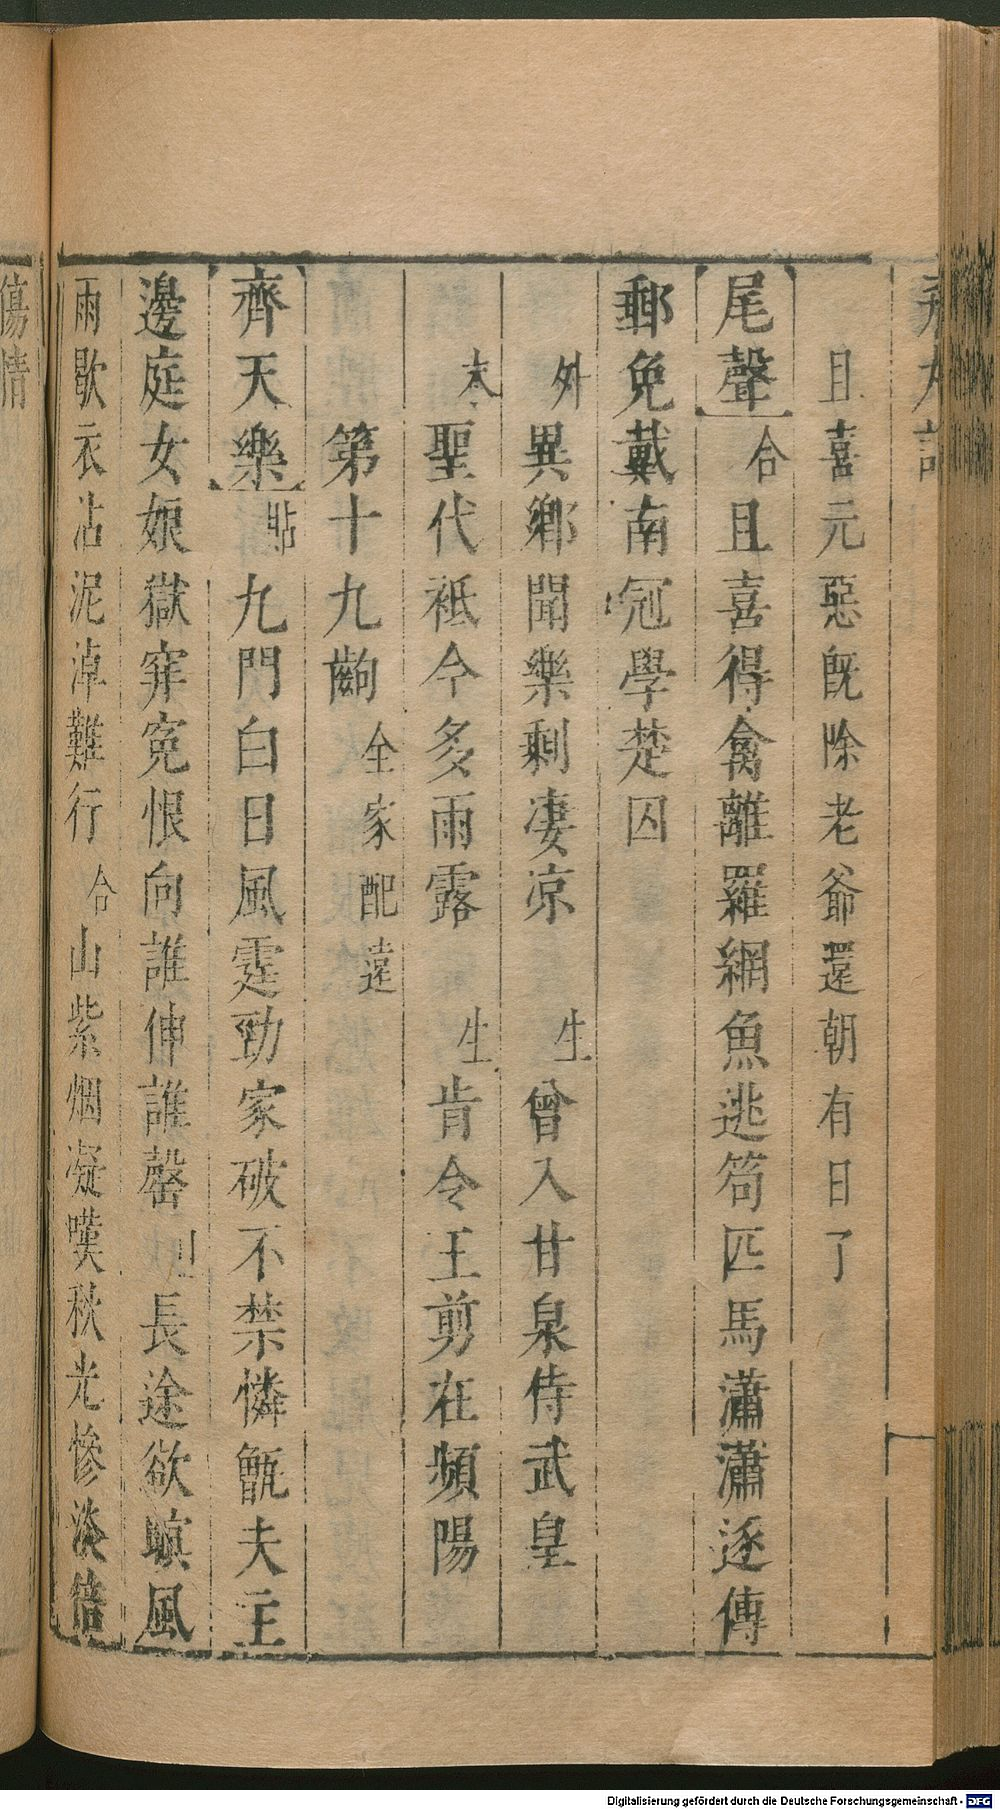 且喜元惡既除老爺還朝有日了
尾聲 合 且喜得禽離羅網魚逃笱匹馬瀟瀟逐傳
郵免戴南冠學楚囚
外 異鄉聞樂剩凄凉 生 曾入甘泉侍武皇
末 聖代祗今多雨露 生 肯令王剪在頻陽
第十九齣 全家配遠
齊天樂 貼 九門白日風霆勁家破不禁憐甑夫主
邊庭女娘獄穽寃恨向誰伸誰罄 旦 長途欲暝風
雨歇衣沾泥淖難行 合 山紫烟凝嘆秋光慘淡倍
傷情
Digitalisierung gefördert durch die Deutsche Forschungsgemeinschaft - DFG